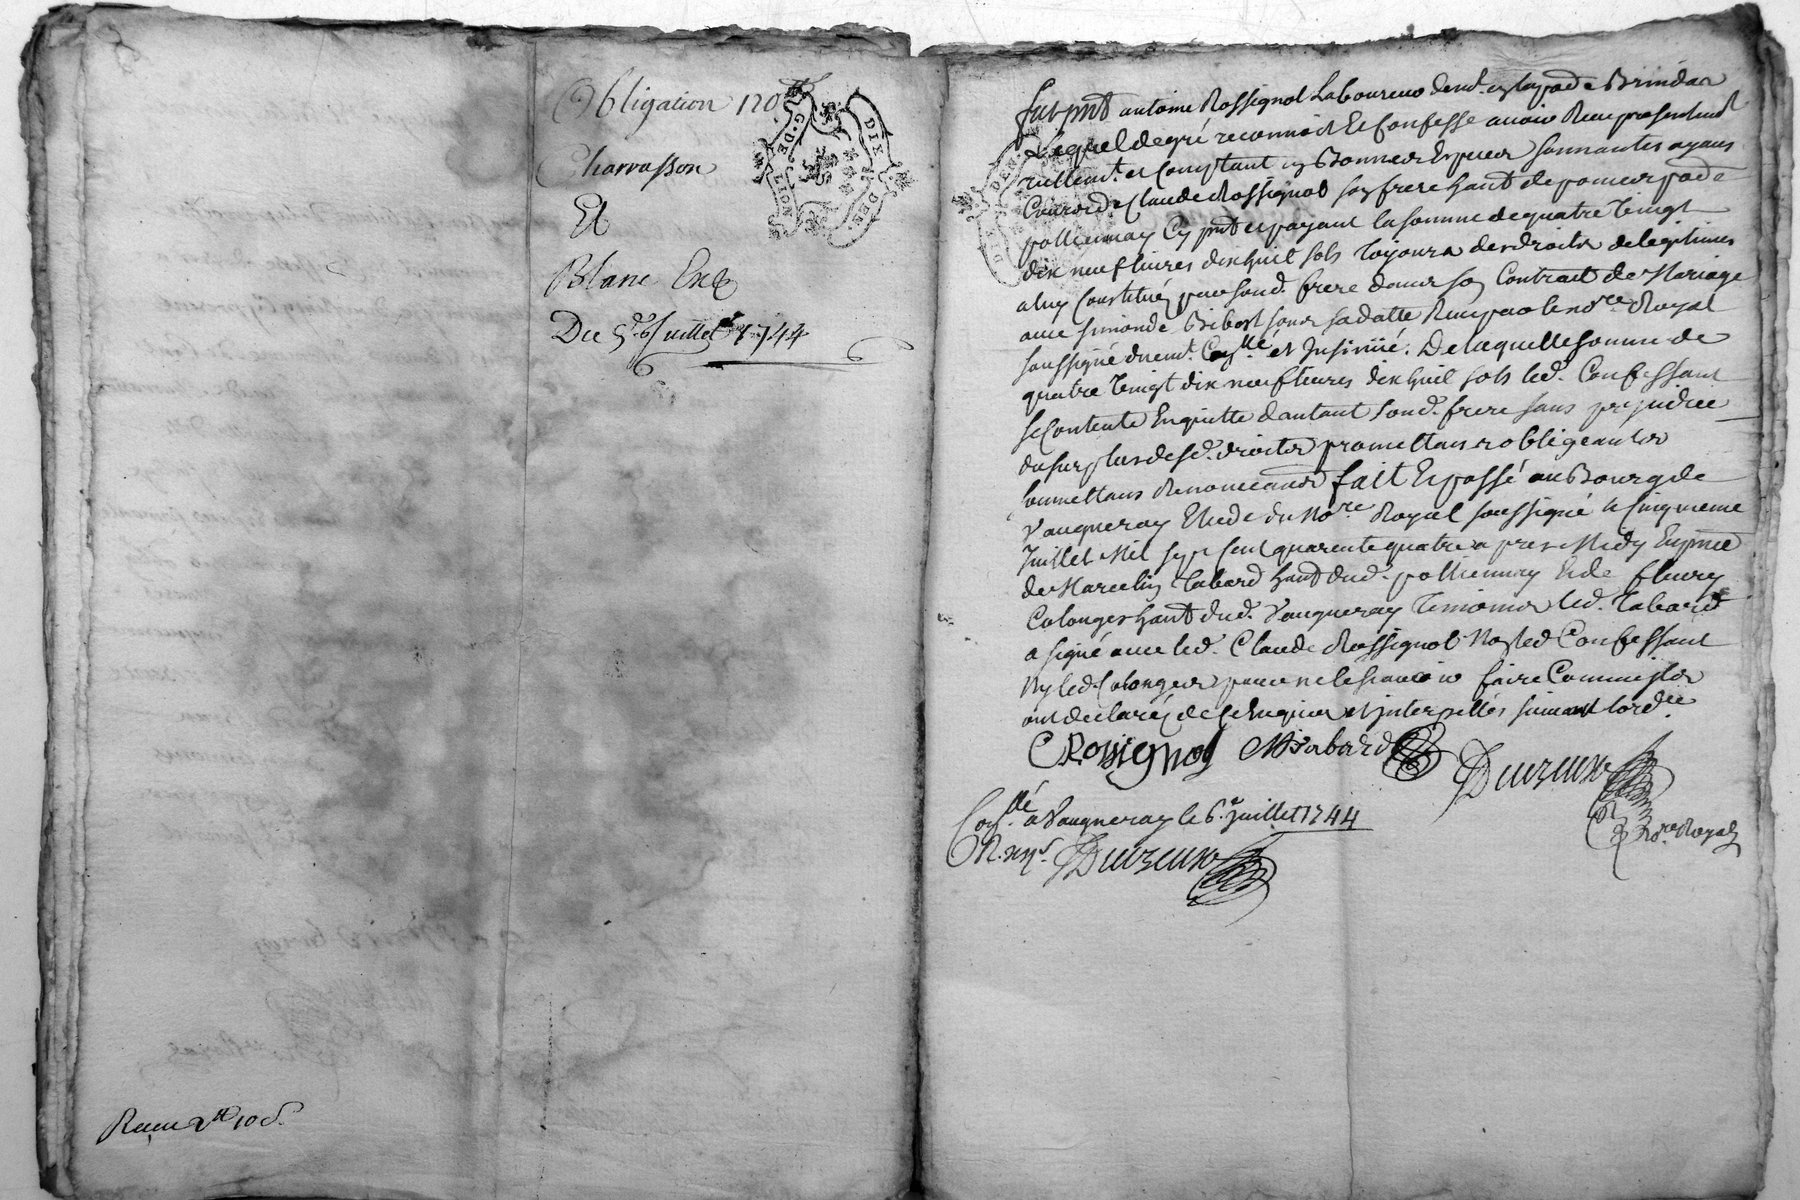 Obligation 120
Charvasson
Et
Blanc
Du 5e Juillet 1744
G. DE LION
DIX DEN.
Receu 2tt 10 s.
fut pnt antoine Rossignol Laboureur demt en la pade Brindas
Lequel de gré reconnoit Et Confesse avoir Receu presentemt
reellemt et Comptant en Bonnes Especes sonnantes ayans
Cours de Claude Rossignol son frere hant de pade
pollionnay Cy pnt et payant la somme de quatre vingt
dix neuf livres dix huit sols des droits de legitimes
a luy Constitués par sond. frere dans son Contrait de Mariage
avec simonde Ribost sous sa datte Receu par le nore Royal
soussigné duemt Conllé et Insinué. De laquelle somme de
quatre vingt dix neuf livres dix huit sols led. Confessant
se Contente En quitte dautant sond. frere sans prejudice
du surplus de sesd. droits promettans obligeans
soumettans Renonceans fait Et passé au Bourg de
Vaugneray Etude du Nore Royal soussigné le Cinquieme
Juillet Mil sept Cent quarente quatre apres Midy En pnce
de Marcelin Tabard hant dud. pollionnay Et de fleury
Colonges hant dud. Vaugneray Temoins led. Tabard
a signé avec led. Claude Rossignol Non led Confessant
Ny led Colonges pour ne le sçavoir faire Comme ils
ont declarés de ce Enquis et interpellés suivant lord.ce
C Rossignol M Tabard
Nore Royal
Conllé a Vaugneray le 6e juillet 1744
R.